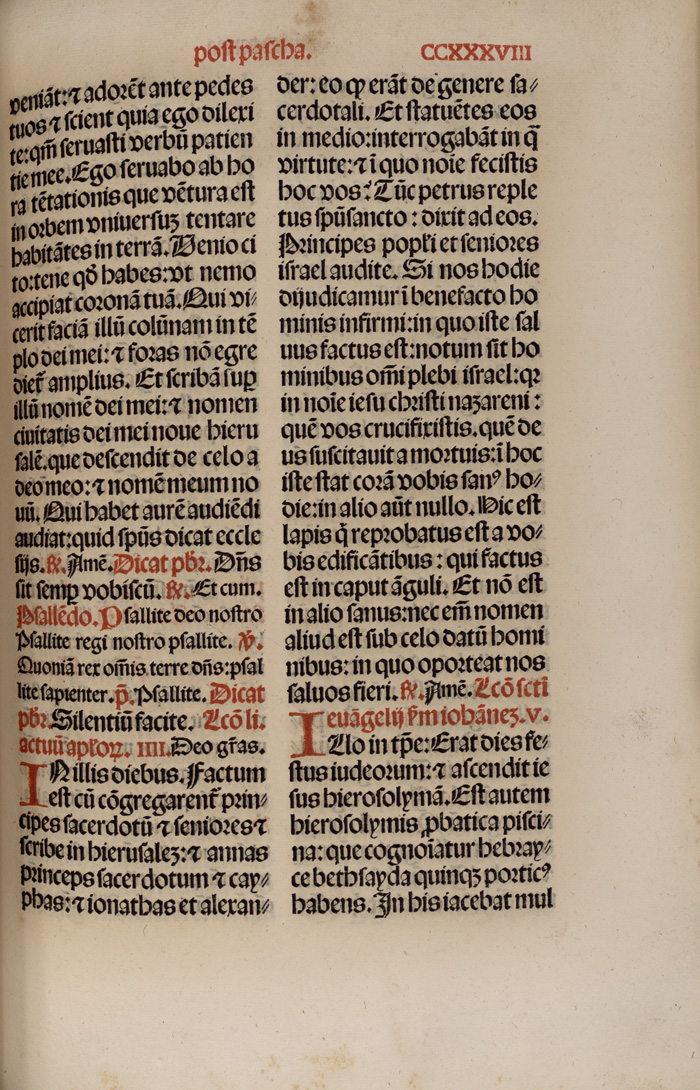 post pascha. CCXXXVIII
veniãt: ⁊ adorẽt ante pedes
tuos ⁊ scient quia ego dilexi
te: qm̃ seruasti verbũ patien
tie mee. Ego seruabo ab ho
ra tẽtationis que vẽtura est
in orbem vniuersuʒ tentare
habitãtes in terrã. Uenio ci
to: tene qđ habes: vt nemo
accipiat coronã tuã. Qui vi⸗
cerit faciã illũ colũnam in tẽ
plo dei mei: ⁊ foras nõ egre
diet᷑ amplius. Et scribã suꝑ
illũ nomẽ dei mei: ⁊ nomen
ciuitatis dei mei noue hieru
salẽ. que descendit de celo a
deo meo: ⁊ nomẽ meum no
uũ. Qui habet aurẽ audiẽdi
audiat: quid spũs dicat eccle
sijs. ℟. Amẽ. Dicat pbr̃. Dñs
sit semꝑ vobiscũ. ℟. Et cum.
Psallẽdo. Psallite deo nostro
Psallite regi nostro psallite. ℣.
Quoniã rex om̃is terre dñs: psal
lite sapienter. p̃. Psallite. Dicat
pbr̃. Silentiũ facite. Lcõ li.
actuũ apl'oꝝ. IIII. Deo gr̃as.
IN illis diebus. Factum
est cũ cõgregarent᷑ prin⸗
cipes sacerdotũ ⁊ seniores ⁊
scribe in hierusaleʒ: ⁊ annas
princeps sacerdotum ⁊ cay⸗
phas: ⁊ ionathas et alexan⸗
der: eo ꝙ erãt de genere sa⸗
cerdotali. Et statuẽtes eos
in medio: interrogabãt in q̃
virtute: ⁊ ĩ quo noĩe fecistis
hoc vos: Tũc petrus reple
tus spũsancto: dixit ad eos.
Principes popl'i et seniores
israel audite. Si nos hodie
dijudicamur ĩ benefacto ho
minis infirmi: in quo iste sal
uus factus est: notum sit ho
minibus om̃i plebi israel: qꝛ
in noĩe iesu christi naʒareni:
quẽ vos crucifixistis. quẽ de
us suscitauit a mortuis: ĩ hoc
iste stat corã vobis sanꝰ ho⸗
die: in alio aũt nullo. Hic est
lapis q̃ reprobatus est a vo⸗
bis edificãtibus: qui factus
est in caput ãguli. Et nõ est
in alio sanus: nec em̃ nomen
aliud est sub celo datũ homi
nibus: in quo oporteat nos
saluos fieri. ℟. Amẽ. Lcõ sctĩ
euãgelij s̃m iohãneʒ. v.
Illo in tp̃e: Erat dies fe⸗
stus iudeorum: ⁊ ascendit ie
sus hierosolymã. Est autem
hierosolymis ꝓbatica pisci⸗
na: que cognoĩatur hebray⸗
ce bethsayda quinqʒ porticꝰ
habens. In his iacebat mul